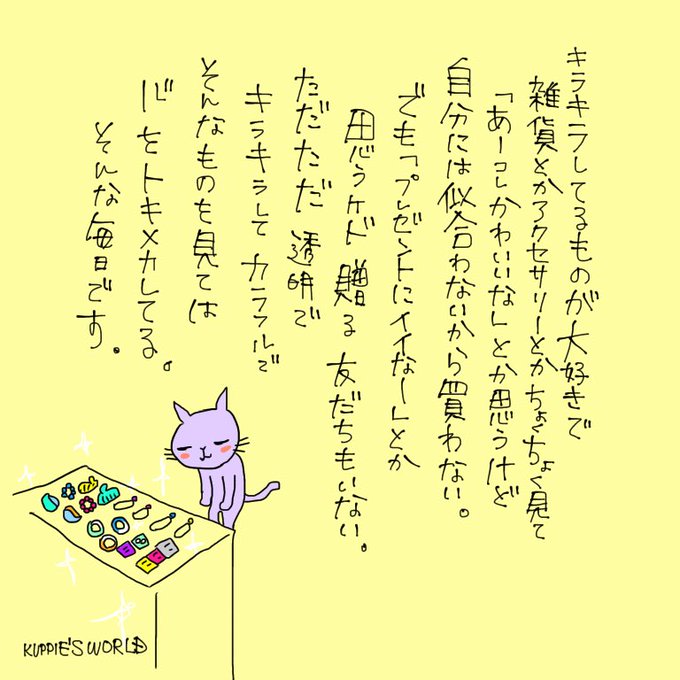 キラキラしてるものが大好きで
雑貨とかアクセサリーとかちょくちょく見て
「あーコレかわいいな」とか思うけど
自分には似合わないから買わない。
でも「プレゼントにイイなー」とか
思うケド 贈る 友だちもいない。
ただただ 透明で
キラキラして カラフルで
そんなものを見ては
心をトキメカしてる。
そんな毎日です。
KUPPIE'S WORLD